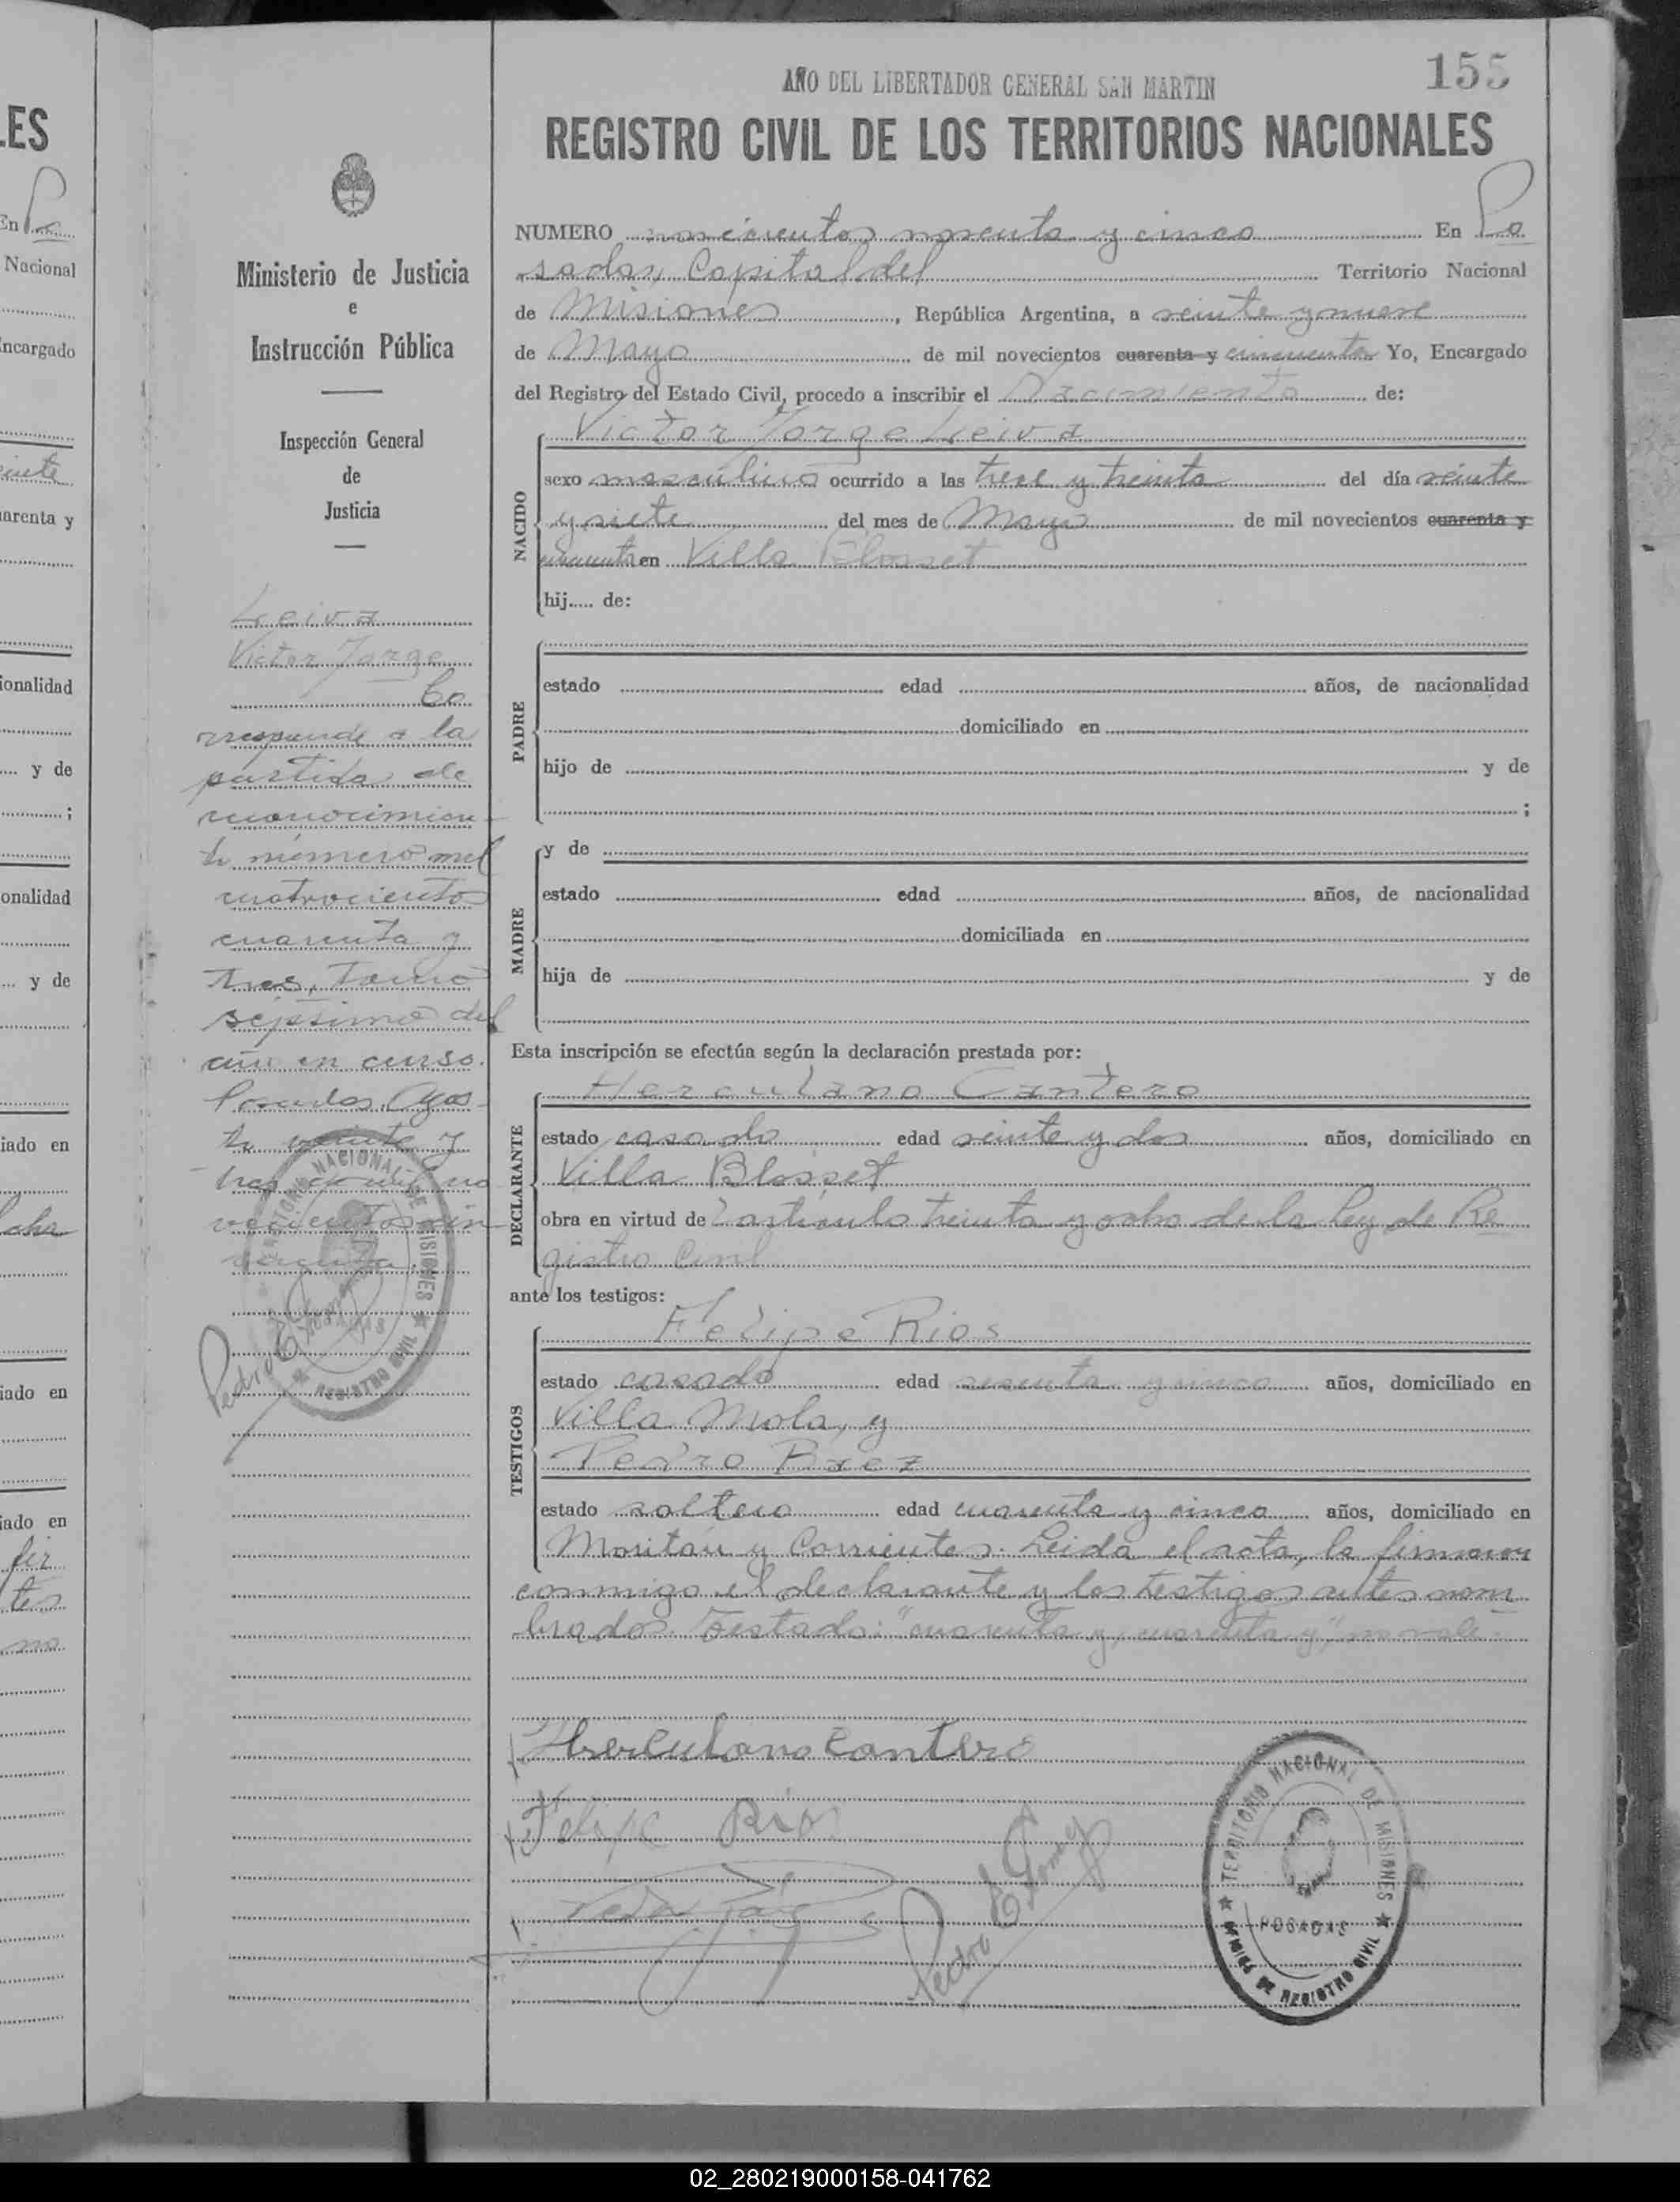 155
AÑO DEL LIBERTADOR GENERAL SAN MARTIN
REGISTRO CIVIL DE LOS TERRITORIOS NACIONALES
Ministerio de Justicia
e
Instrucción Pública
Inspección General
de
Justicia
Leiva
Victor Jorge
Co
rresponde a la
partida de
reconocimien-
to número mil
cuatrocientos
cuarenta y
tres, Tomo
séptimo del
año en curso.
Posadas, Agos-
to veinte y
tres de mil no
vecientos cin-
cuenta.
NUMERO novecientos noventa y cinco En Po
sadas, Capital del Territorio Nacional
de Misiones, República Argentina, a veinte y nueve
de Mayo de mil novecientos cuarenta y cincuenta Yo, Encargado
del Registro del Estado Civil, procedo a inscribir el Nacimiento de:
NACIDO
Victor Jorge Leiva
sexo masculino ocurrido a las trece y treinta del día veinte
y siete del mes de Mayo de mil novecientos cuarenta y
cincuenta en Villa Blosset
hij..... de:
PADRE
estado edad años, de nacionalidad
domiciliado en
hijo de y de
;
MADRE
y de
estado edad años, de nacionalidad
domiciliada en
hija de y de
Esta inscripción se efectúa según la declaración prestada por:
DECLARANTE
Herculano Cantero
estado casado edad veinte y dos años, domiciliado en
Villa Blosset
obra en virtud de l artículo treinta y ocho de la Ley de Re
gistro Civil
ante los testigos:
TESTIGOS
Felipe Rios
estado casado edad sesenta y cinco años, domiciliado en
Villa Mola, y
Pedro Baez
estado soltero edad cuarenta y cinco años, domiciliado en
Moritán y Corrientes. Leida el acta, la firmaron
conmigo el declarante y los testigos antes nom
brados. Testado: "cuarenta y, cuarenta y", no vale.-
Herculano Cantero
Felipe Rios
Pedro Báez
Pedro E. Gomez
TERRITORIO NACIONAL DE MISIONES
POSADAS
OFICINA DE REGISTRO CIVIL
02_280219000158-041762